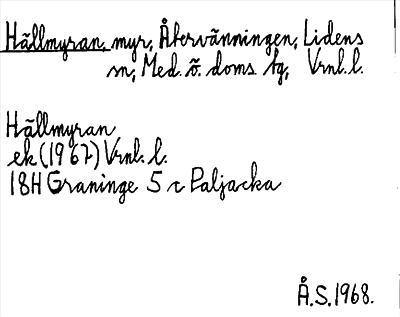 Hällmyran, myr, Återvänningen, Lidens
sn, Med. ö. doms tg, Vrnl. l.
Hällmyran
ek (1967) Vrnl. l.
18H Graninge 5 c Paljacka
Å.S. 1968.